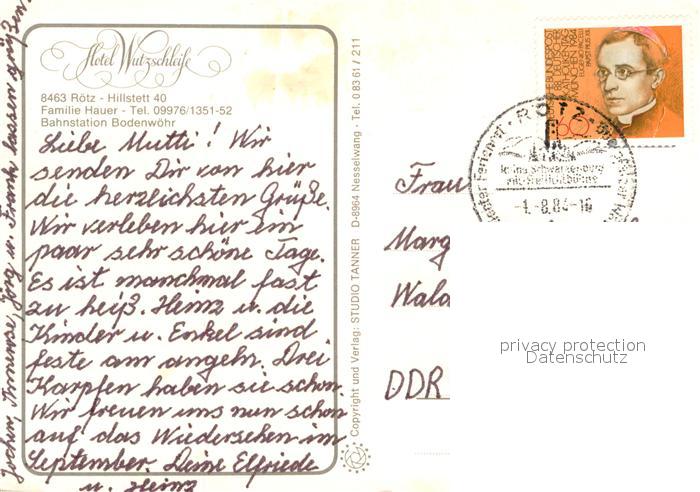 Hotel Wutzschleife
8463 Rötz - Hillstett 40
Familie Hauer - Tel. 09976/1351-52
Bahnstation Bodenwöhr
Liebe Mutti! Wir
senden Dir von hier
die herzlichsten Grüße.
Wir verleben hier ein
paar sehr schöne Tage.
Es ist manchmal fast
zu heiß. Heinz u. die
Kinder u. Enkel sind
feste am angeln. Drei
Karpfen haben sie schon.
Wir freuen uns nun schon
auf das Wiedersehen im
September. Deine Elfriede
u. Heinz
Jochen, Annerose, Jörg u. Frank lassen grüßen
Copyright und Verlag: STUDIO TANNER D-8964 Nesselwang · Tel. 0 83 61 / 211
DEUTSCHE BUNDESPOST
88. DEUTSCHER
KATHOLIKENTAG
MÜNCHEN 1984
EUGENIO PACELLI
PAPST PIUS XII.
60
RÖTZ
Ruine Schwarzenburg
mit Freilichtbühne
-1.-8.84-16
Frau
Marg
Wald
DDR
privacy protection
Datenschutz